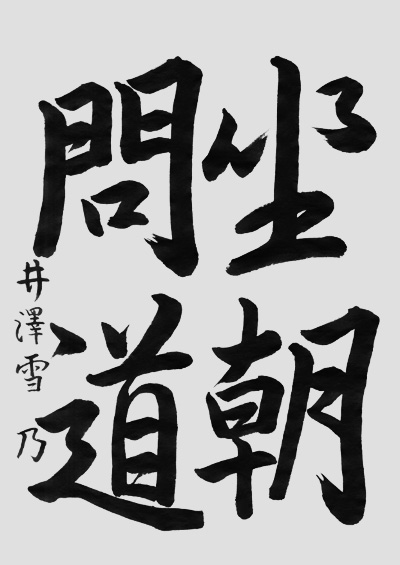 坐朝
問道
井澤雪乃